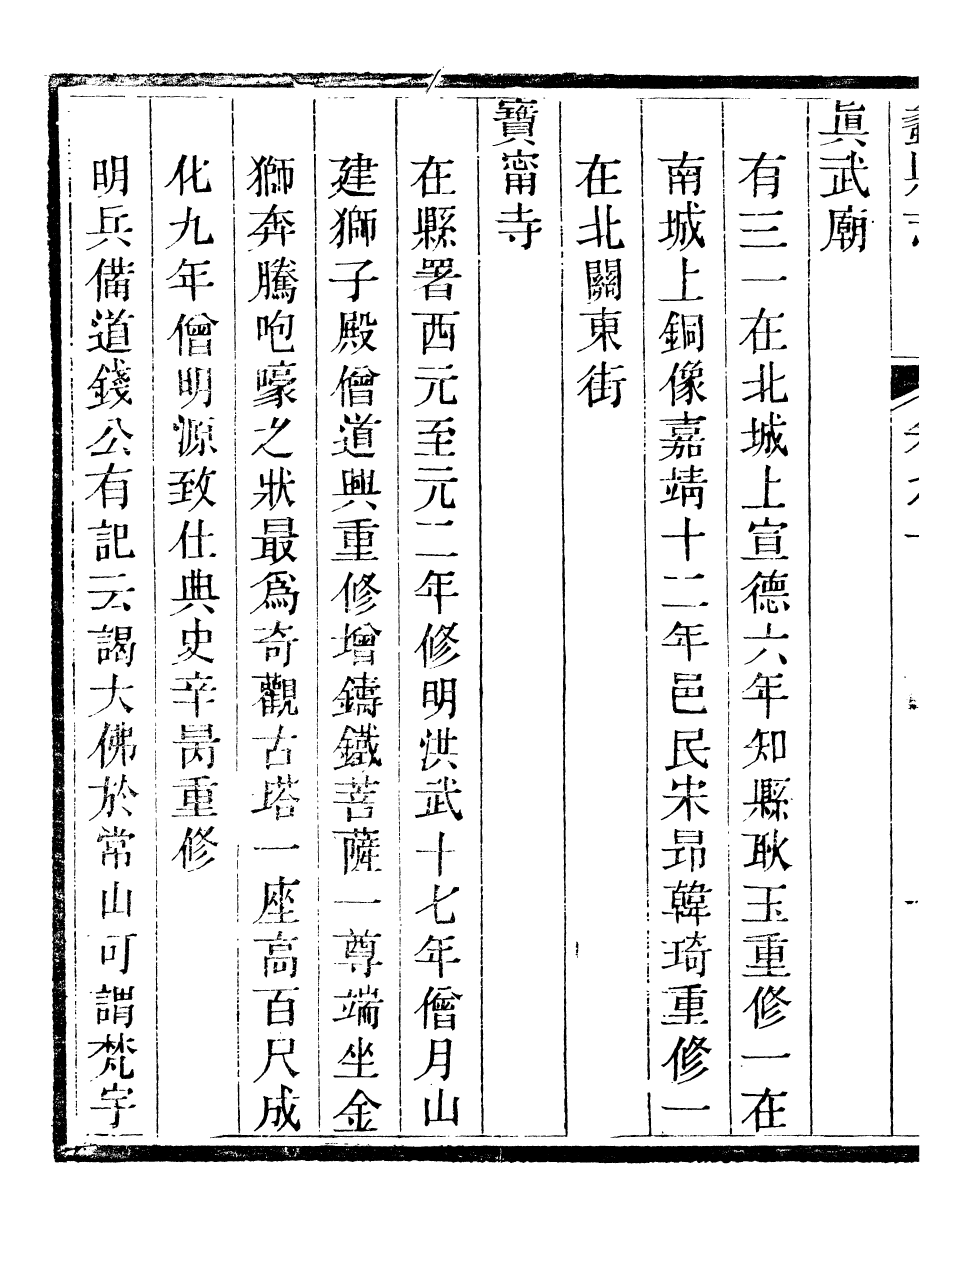 眞武廟
有三一在北城上宣德六年知縣耿玉重修一在
南城上銅像嘉靖十二年邑民宋昂韓琦重修一
在北關東街
寶甯寺
在縣署西元至元二年修明洪武十七年僧月山
建獅子殿僧道興重修增鑄鐵菩薩一尊端坐金
獅奔騰咆嚎之狀最爲奇觀古塔一座高百尺成
化九年僧明源致仕典史辛昺重修
明兵備道錢公有記云謁大佛於常山可謂梵宇